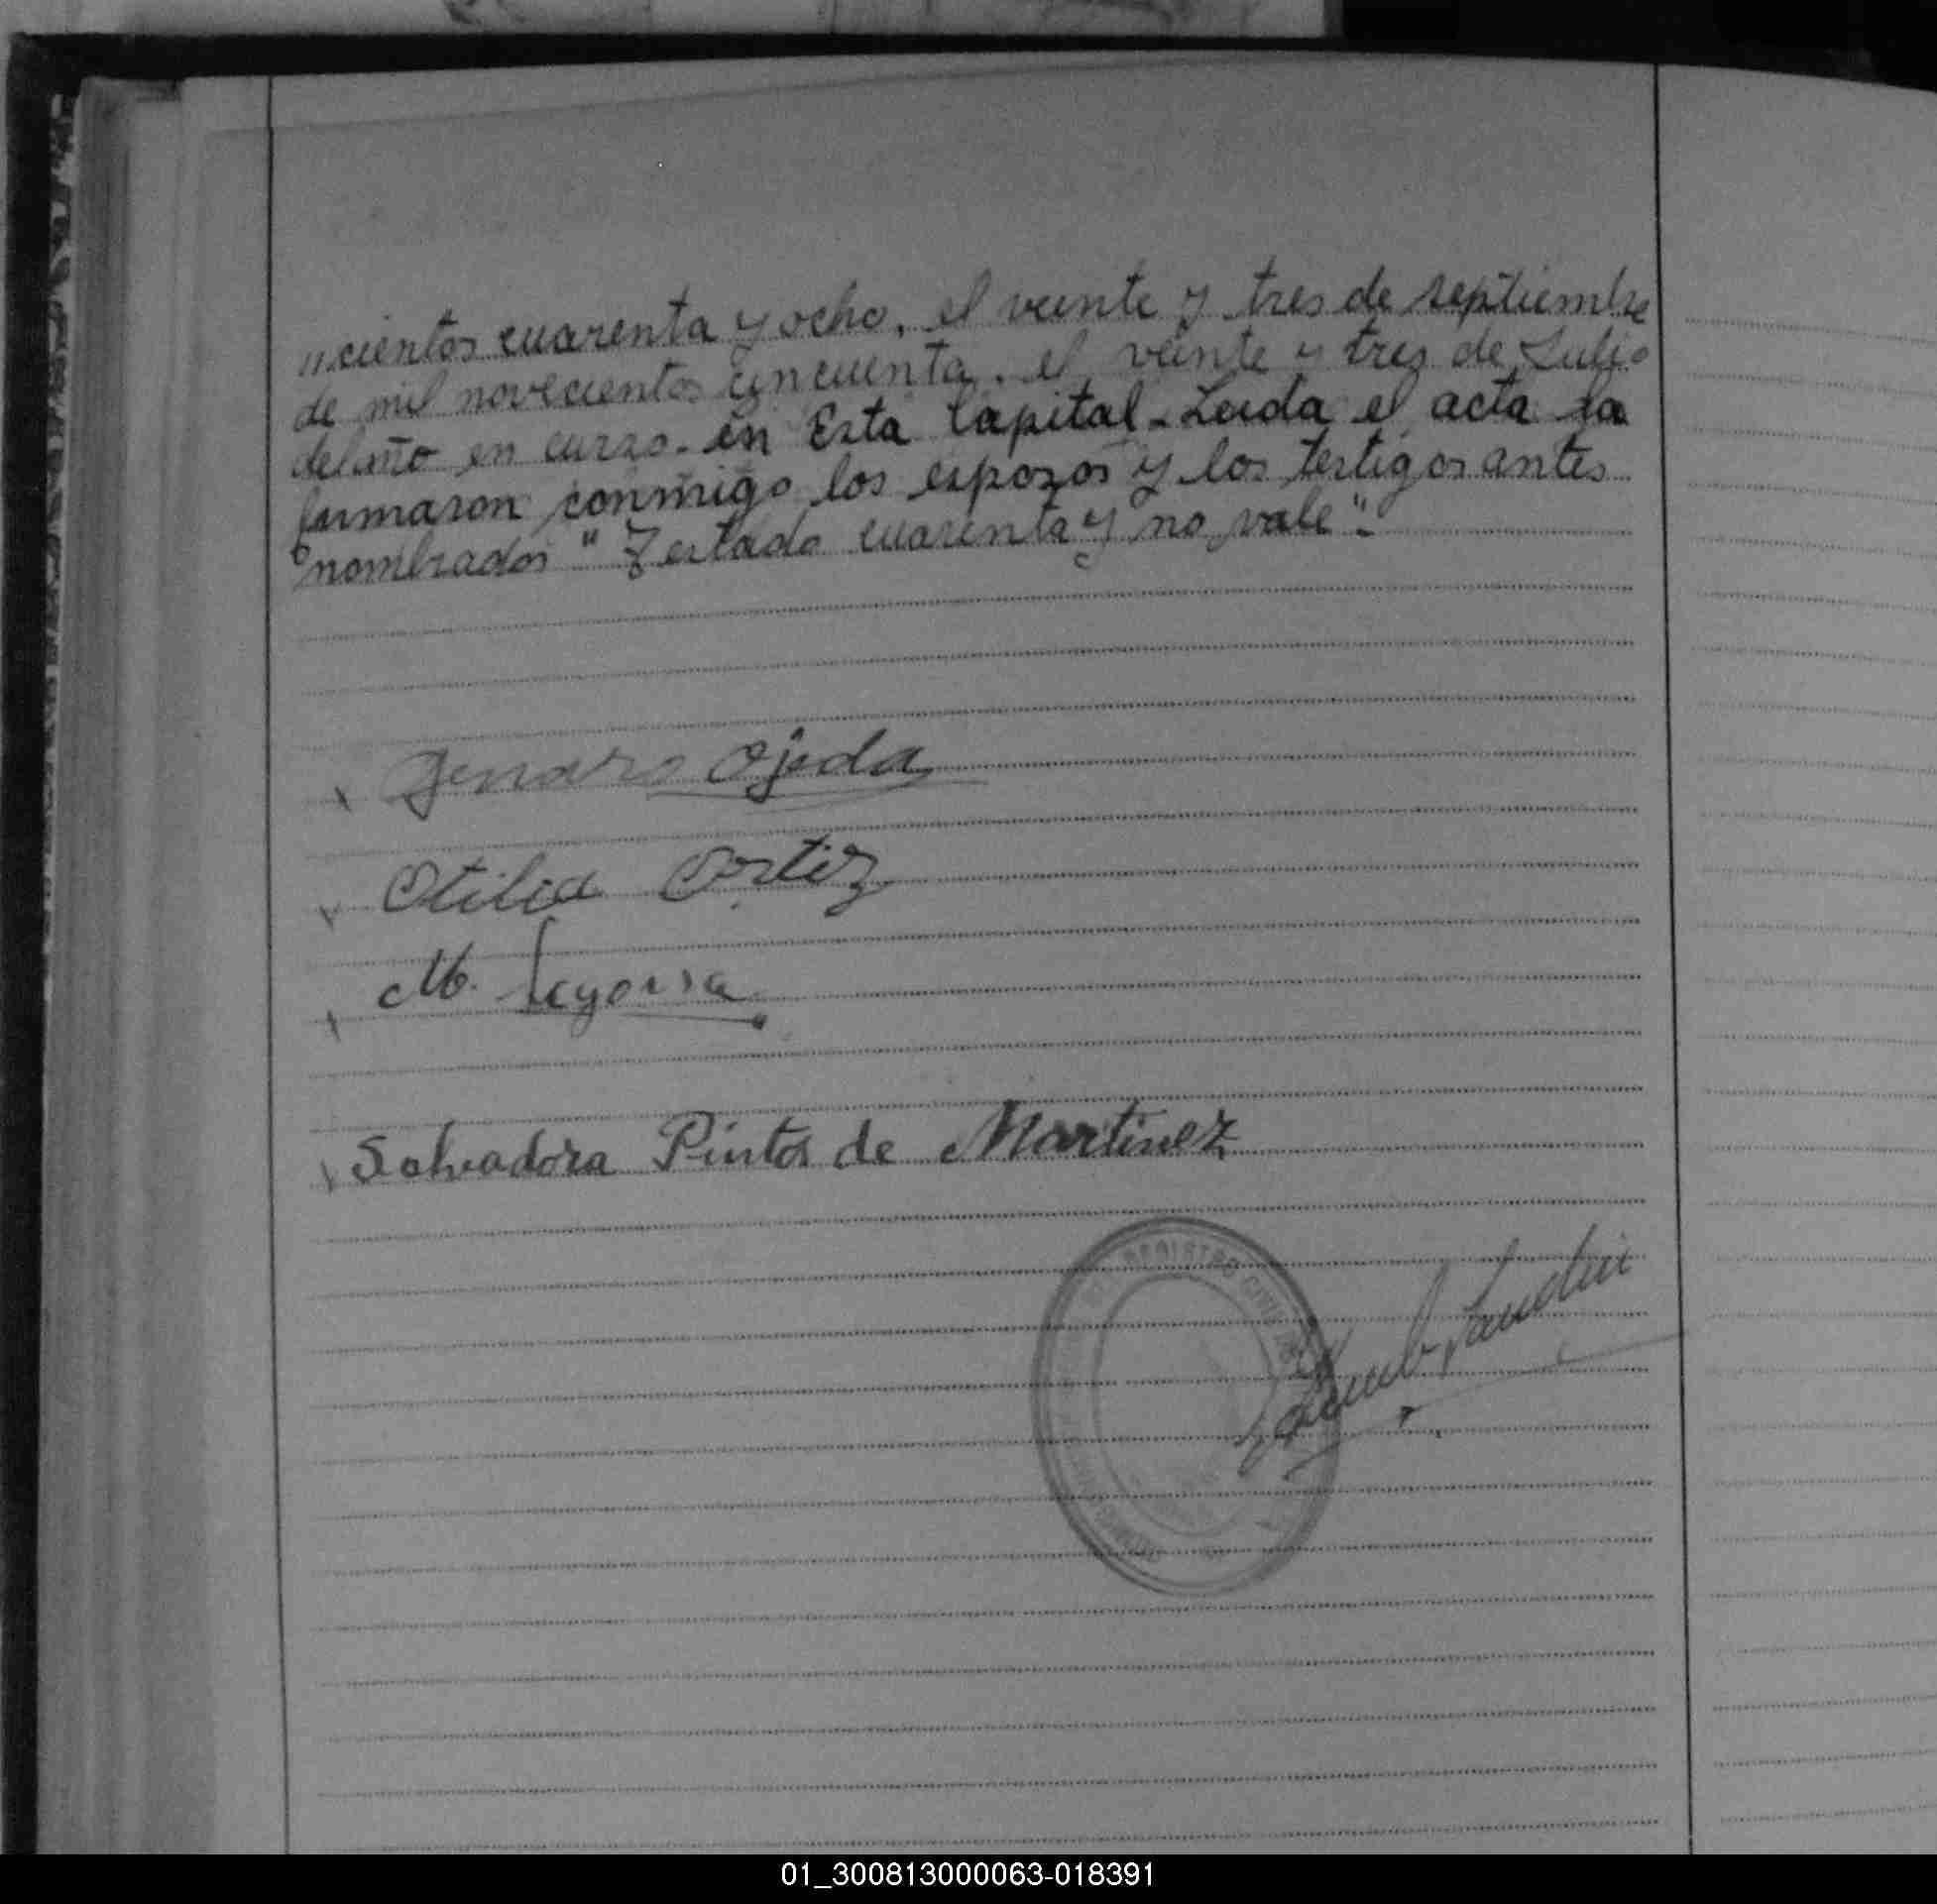 "cientos cuarenta y ocho, el veinte y tres de septiembre
de mil novecientos cincuenta, el veinte y tres de Julio
del año en curso. en Esta Capital - Leida el acta la
firmaron conmigo los espozos y los testigos antes
nombrados "Testado cuarenta y no vale".-
Genaro Ojeda
Otilia Ortiz
M. Segovia
Salvadora Pintos de Martinez
REGISTRO CIVIL
01_300813000063-018391